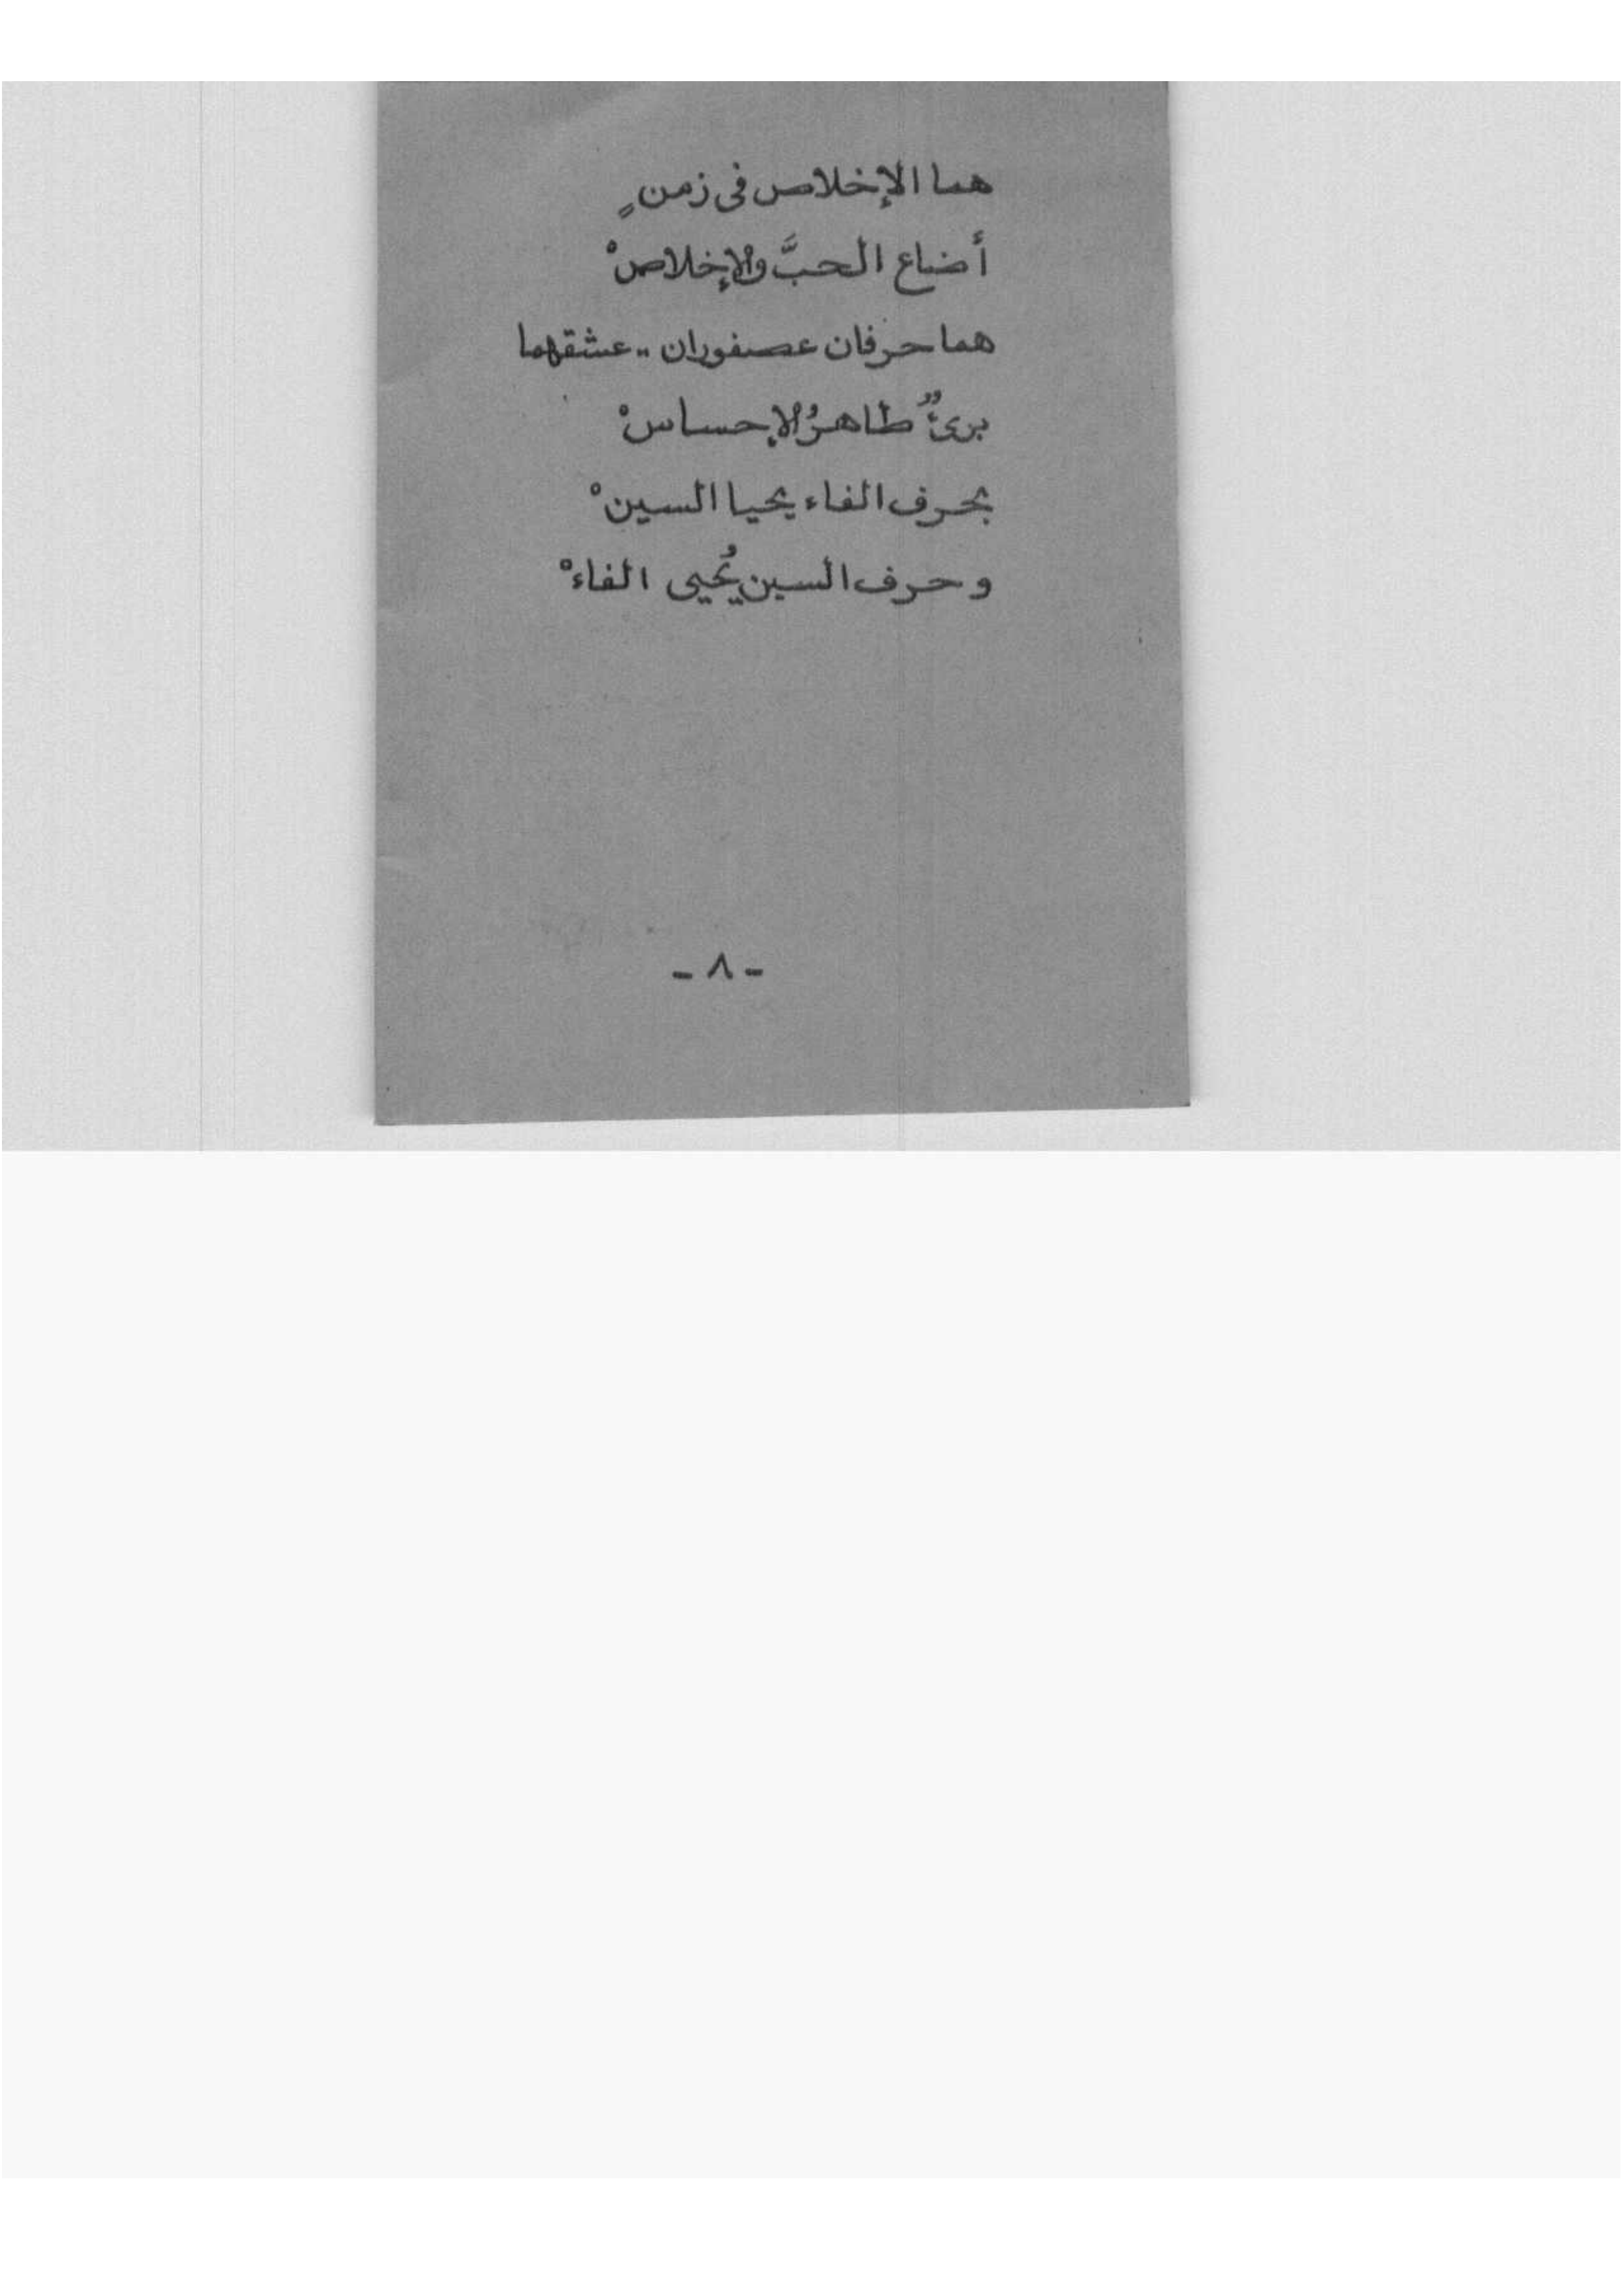 هما الإخلاص فى زمنٍ
أضاع الحبَّ والإخلاصْ
هما حرفان عصفوران .. عشقهما
برىءٌ طاهرُ الإحساسْ
بحرف الفاء يحيا السينْ
و حرف السين يُحيى الفاءْ
- ٨ -